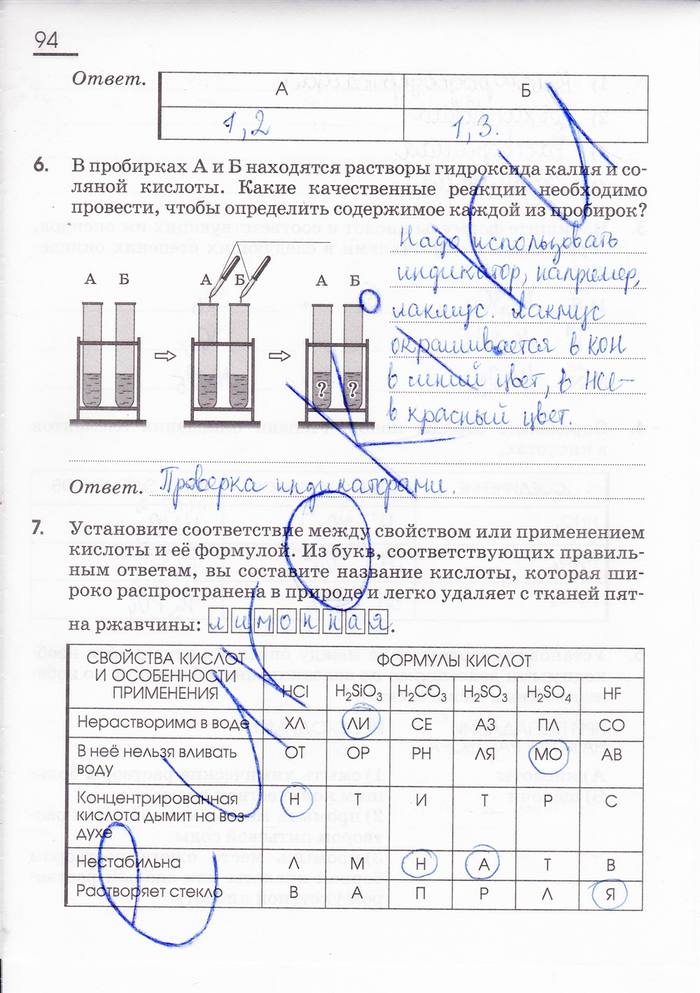 94
Ответ.
А Б
1,2 1,3.
6. В пробирках А и Б находятся растворы гидроксида калия и со-
ляной кислоты. Какие качественные реакции необходимо
провести, чтобы определить содержимое каждой из пробирок?
Надо использовать
индикатор, например,
лакмус. Лакмус
окрашивается в KOH
в синий цвет, в HCl–
в красный цвет.
А Б А Б А Б
? ?
Ответ. Проверка индикаторами.
7. Установите соответствие между свойством или применением
кислоты и её формулой. Из букв, соответствующих правиль-
ным ответам, вы составите название кислоты, которая ши-
роко распространена в природе и легко удаляет с тканей пят-
на ржавчины: лимонная.
СВОЙСТВА КИСЛОТ И ОСОБЕННОСТИ ПРИМЕНЕНИЯ
ФОРМУЛЫ КИСЛОТ
HCl H₂SiO₃ H₂CO₃ H₂SO₃ H₂SO₄ HF
Нерастворима в воде ХЛ ЛИ СЕ АЗ ПЛ СО
В неё нельзя вливать ОТ ОР РН ЛЯ МО АВ
воду
Концентрированная Н Т И Т Р С
кислота дымит на воз-
духе
Нестабильна Л М Н А Т В
Растворяет стекло В А П Р Л Я